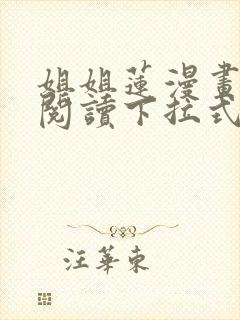 姐姐蓮漫畫
閱讀下拉式
汪華東